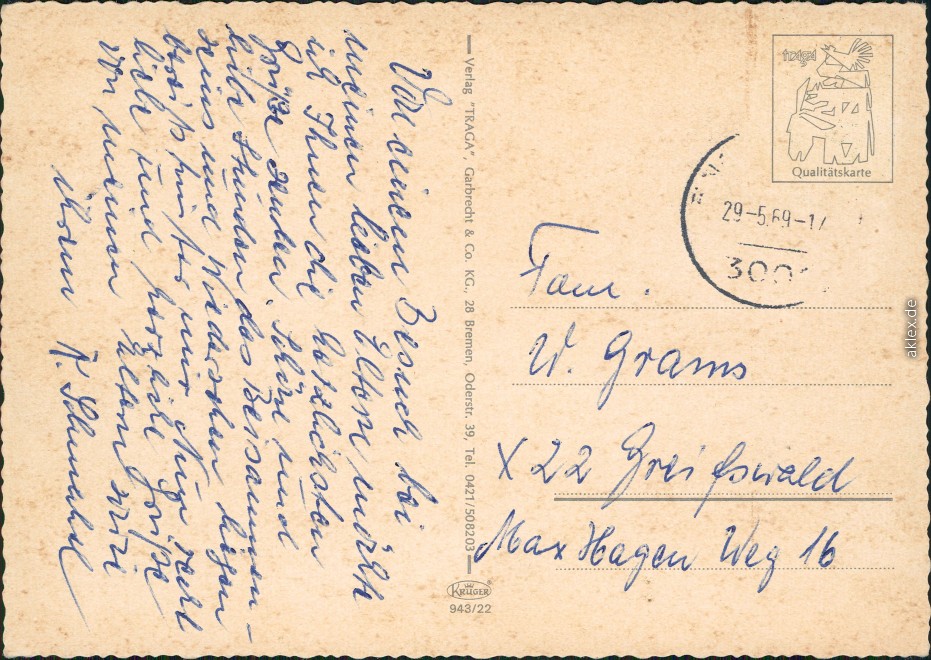 Von einem Besuch bei
meinen lieben Eltern möchte
ich Ihnen die herzlichsten
Grüße senden. Schöne und
liebe Stunden des Beisammen-
seins und Wiedersehen liegen
bereits hinter mir. Nur recht
liebe und herzliche Grüße
von meinen Eltern sowie
Ihrem K. Schumacher
Verlag "TRAGA", Garbrecht & Co. KG., 28 Bremen, Oderstr. 39, Tel. 0421/508203
KRÜGER
943/22
traga
Qualitätskarte
29-5.69-17
300
Fam.
W. Grams
X 22 Greifswald
Max Hagen Weg 16
aklex.de